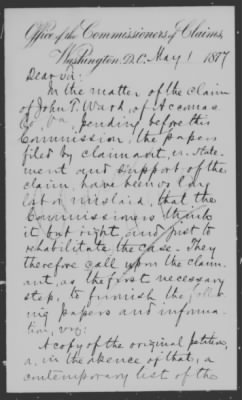 Office of the Commissioners of Claims,
Washington, D.C. May 1 1877
Dear Sir:
In the matter of the claim
of John T. Wash, of Accomac
Co. Va. pending before this
Commission, the papers
filed by claimant, in state-
ment and support of the
claim, have been so long
lost or mislaid, that the
Commissioners think
it but right and just to
rehabilitate the case. They
therefore call upon the claim-
ant, as the first necessary
step, to furnish the follow-
ing papers and informa-
tion, viz:
A copy of the original petition,
or, in the absence of that, a
contemporary list of the